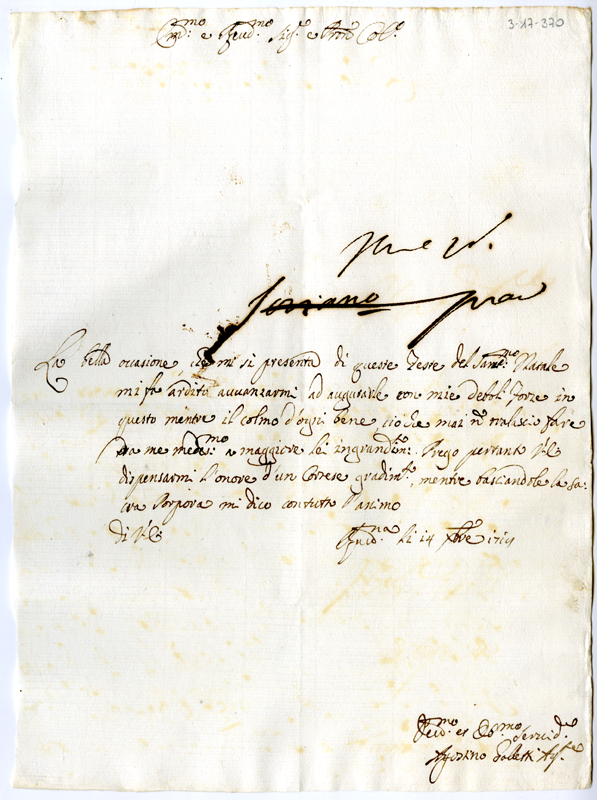 3-17-370
Em.mo e Reud.mo Sig.re e Prne Col.o
Soriano
La bella occasione, che mi si presenta di queste Feste del Sant.mo Natale
mi fa ardito avvanzarmi ad augurarle con mie deboli forze in
questo mentre il colmo d'ogni bene, ciò che mai nõ tralascio fare
da me medes.mo a maggiore lei ingrandim.to. Prego pertanto V.E.
dispensarmi l'onore d'un Cortese gradim.to, mentre basciandole la Sa:
cra Porpora mi dico con tutto l'animo
Di V.E.
li 14 Xbre
Dev.mo et Ob.mo Servid.re
Agostino